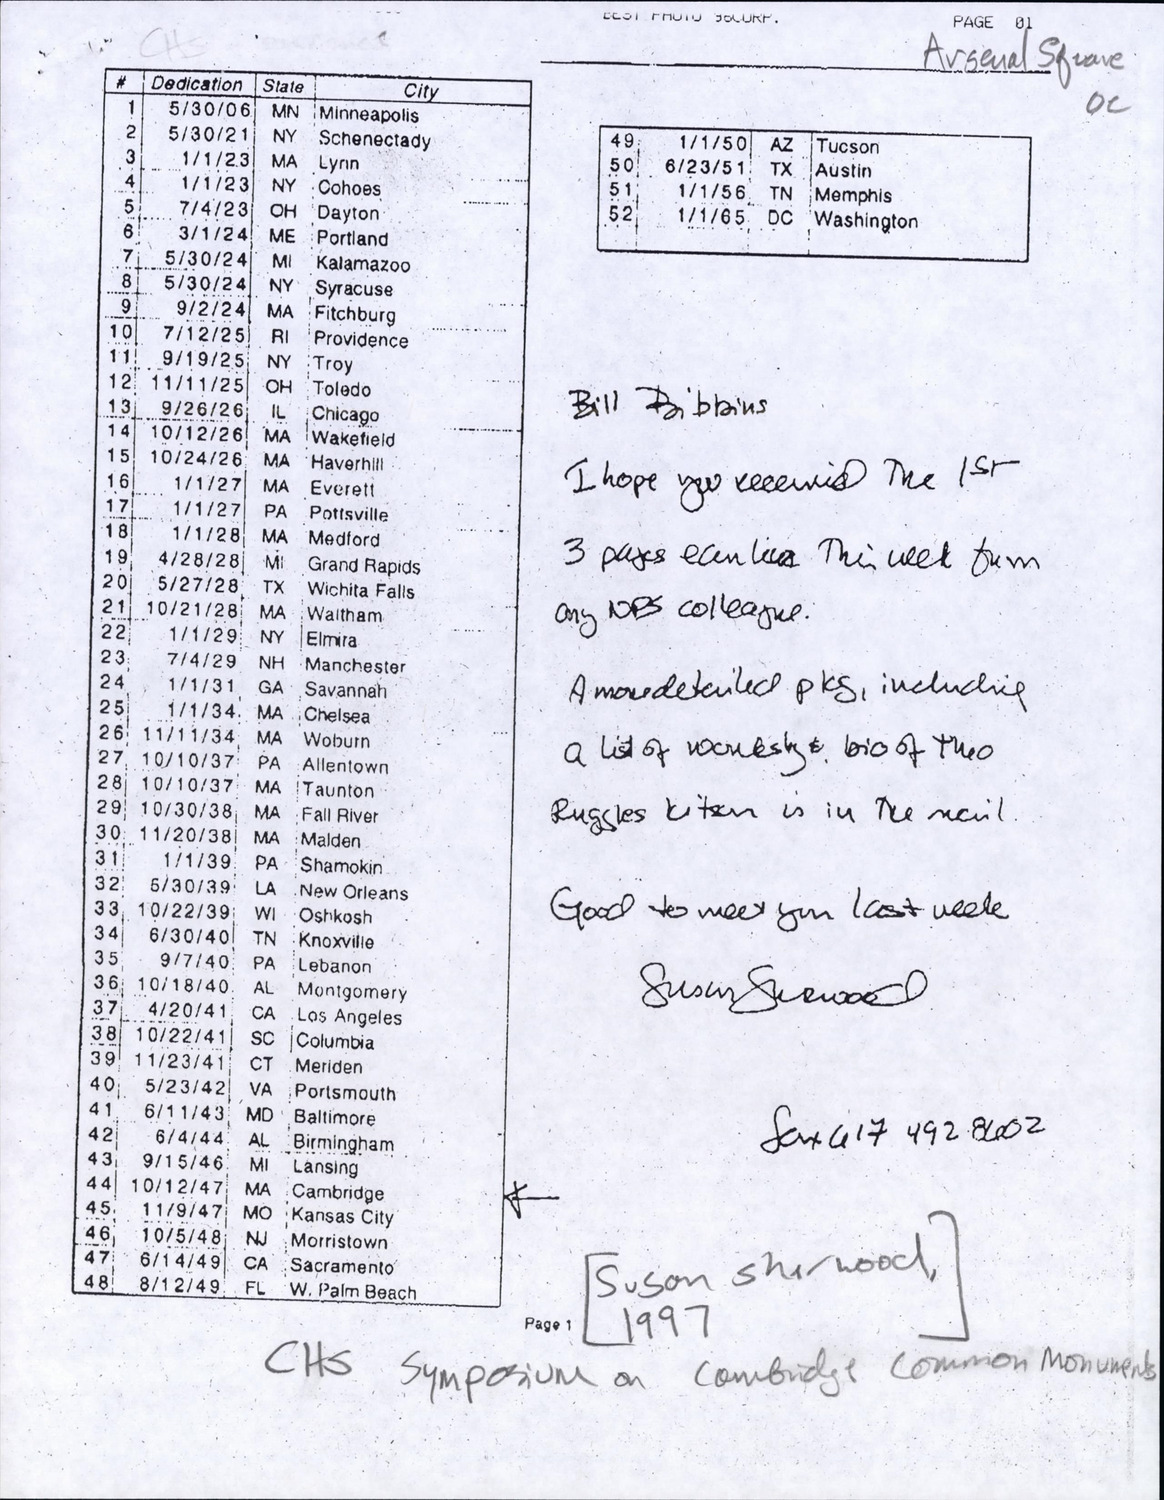 PAGE 01
Arsenal Square
# Dedication State City
1 5/30/06 MN Minneapolis
2 5/30/21 NY Schenectady
3 1/1/23 MA Lynn
4 1/1/23 NY Cohoes
5 7/4/23 OH Dayton
6 3/1/24 ME Portland
7 5/30/24 MI Kalamazoo
8 5/30/24 NY Syracuse
9 9/2/24 MA Fitchburg
10 7/12/25 RI Providence
11 9/19/25 NY Troy
12 11/11/25 OH Toledo
13 9/26/26 IL Chicago
14 10/12/26 MA Wakefield
15 10/24/26 MA Haverhill
16 1/1/27 MA Everett
17 1/1/27 PA Pottsville
18 1/1/28 MA Medford
19 4/28/28 MI Grand Rapids
20 5/27/28 TX Wichita Falls
21 10/21/28 MA Waltham
22 1/1/29 NY Elmira
23 7/4/29 NH Manchester
24 1/1/31 GA Savannah
25 1/1/34 MA Chelsea
26 11/11/34 MA Woburn
27 10/10/37 PA Allentown
28 10/10/37 MA Taunton
29 10/30/38 MA Fall River
30 11/20/38 MA Malden
31 1/1/39 PA Shamokin
32 5/30/39 LA New Orleans
33 10/22/39 WI Oshkosh
34 6/30/40 TN Knoxville
35 9/7/40 PA Lebanon
36 10/18/40 AL Montgomery
37 4/20/41 CA Los Angeles
38 10/22/41 SC Columbia
39 11/23/41 CT Meriden
40 5/23/42 VA Portsmouth
41 6/11/43 MD Baltimore
42 6/4/44 AL Birmingham
43 9/15/46 MI Lansing
44 10/12/47 MA Cambridge
45 11/9/47 MO Kansas City
46 10/5/48 NJ Morristown
47 6/14/49 CA Sacramento
48 8/12/49 FL W. Palm Beach
49 1/1/50 AZ Tucson
50 6/23/51 TX Austin
51 1/1/56 TN Memphis
52 1/1/65 DC Washington
Bill Dibbins
I hope you received The 1st
3 pages earlier This week from
my NPS colleague.
A more detailed pkg, including
a list of works & bio of Theo
Ruggles Kitson is in The mail.
Good to meet you last week
Susan Sherwood
fax 617 492 8602
[Susan Sherwood,
1997]
Page 1
CHS Symposium on Cambridge Common Monuments